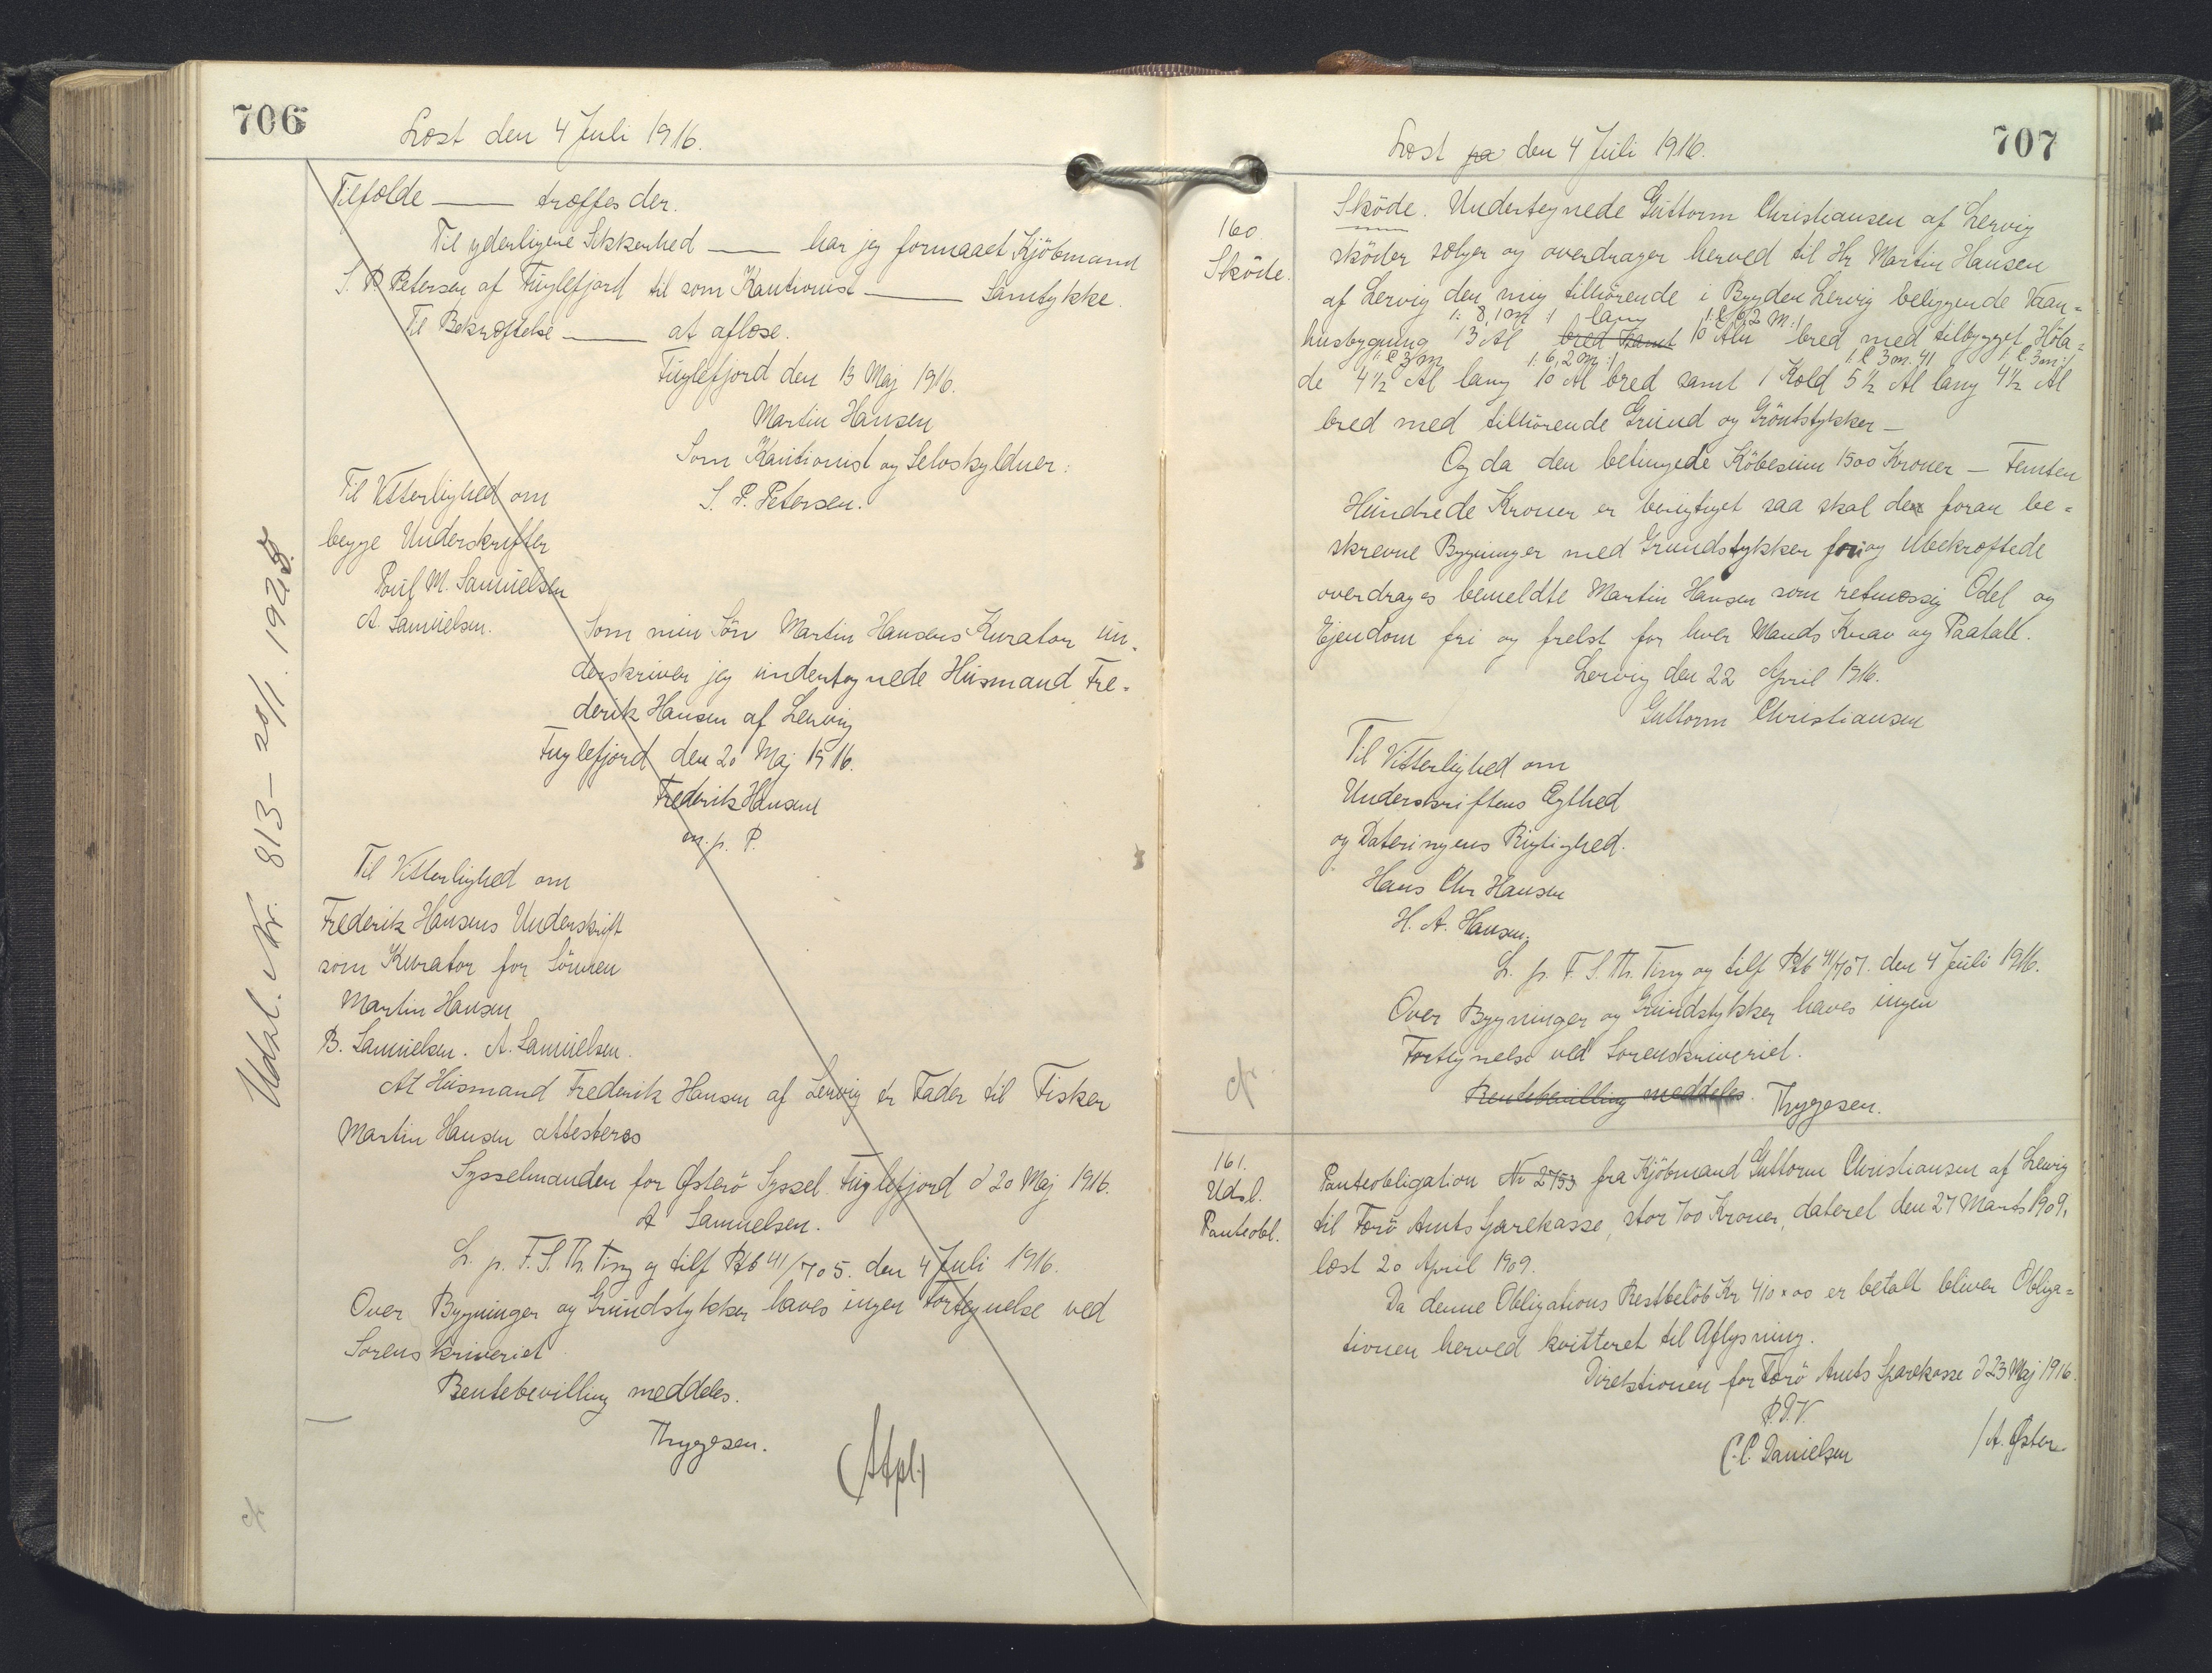 706
Læst den 4 Juli 1916.
Tilfælde —— træffes der.
Til yderligere Sikkerhed —— har jeg formaaet Kjöbmand
S. P. Petersen af Fuglefjord til som Kautionist —— Samtykke.
Til Bekræftelse —— at aflæse.
Fuglefjord den 13 Maj 1916.
Martin Hansen
Som Kautionist og Selvskyldner:
S. P. Petersen.
Til Vitterlighed om
begge Underskrifter
Poul M. Samuelsen
A. Samuelsen.
Som min Sön Martin Hansens Kurator un-
derskriver jeg undertegnede Husmand Fre-
derik Hansen af Lervig
Fuglefjord den 20 Maj 1916.
Frederik Hansen
m. p. P.
Til Vitterlighed om
Frederik Hansens Underskrift
som Kurator for Sönnen
Martin Hansen
B. Samuelsen. A. Samuelsen.
At Husmand Frederik Hansen af Lervig er Fader til Fisker
Martin Hansen attesteres
Sysselmanden for Østerö Syssel. Fuglefjord d 20 Maj 1916.
A Samuelsen.
L. p. F. S. Th. Ting og tilf Ptb 41/705. den 4 Juli 1916.
Over Bygninger og Grundstykker haves ingen Fortegnelse ved
Sorenskriveriet
Rentebevilling meddeles.
Thygesen.
(Afpl.)
Udsl. Nr. 813 – 20/1. 1925.
cfr
707
Læst pa den 4 Juli 1916.
160
Sköde.
Sköde. Undertegnede Guttorm Christiansen af Lervig
sköder sælger og overdrager herved til Hr Martin Hansen
af Lervig den mig tilhörende i Bygden Lervig beliggende Vaan-
husbygning 13 Al bred samt 10 Aln bred med tilbygget Höla-
de 4½ Al lang 10 Al bred samt 1 Kold 5½ Al lang 4½ Al
bred med tilhörende Grund og Gröntstykker —
Og da den betingede Köbesum 1500 Kroner — Femten
Hundrede Kroner er berigtiget saa skal de foran be-
skrevne Bygninger med Grundstykker fri og Ubekræftede
overdrages bemeldte Martin Hansen som retmæssig Odel og
Ejendom fri og frelst for hver Mands Krav og Paatale.
Lervig den 22 April 1916.
Guttorm Christiansen
Til Vitterlighed om
Underskriftens Ægthed
og Dateringens Rigtighed.
Hans Chr Hansen
H. A. Hansen.
L. p. F. S. Th. Ting og tilf Ptb 41/707. den 4 Juli 1916.
Over Bygninger og Grundstykker haves ingen
Fortegnelse ved Sorenskriveriet.
Rentebevilling meddeles. Thygesen.
cfr.
161.
Udsl.
Panteobl.
Panteobligation No 2753 fra Kjöbmand Guttorm Christiansen af Lervig
til Færö Amts Sparekasse, stor 700 Kroner, dateret den 27 Marts 1909,
læst 20 April 1909.
Da denne Obligations Restbelöb Kr 410 x 00 er betalt bliver Obliga-
tionen herved kvitteret til Aflysning.
Direktionen for Færö Amts Sparekasse d 23 Maj 1916.
P. D. V.
C. C. Danielsen / A. Øster